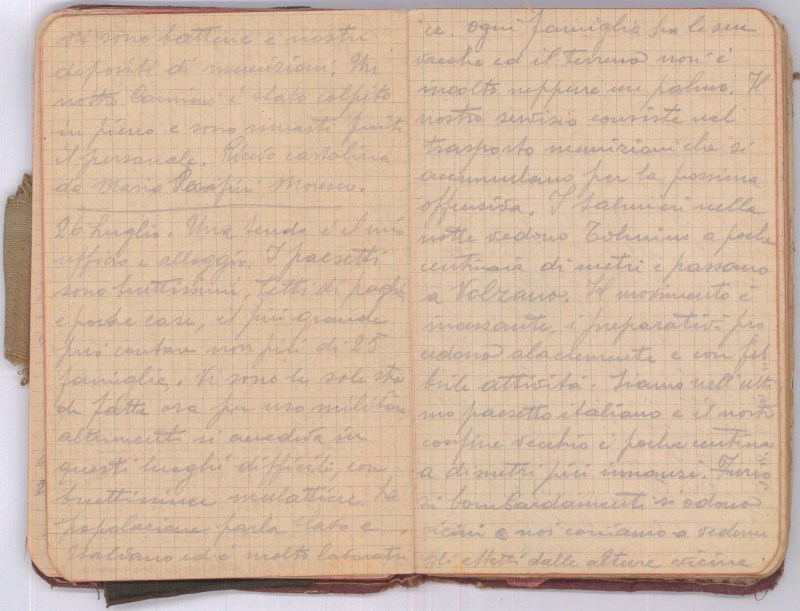 vi sono batterie e nostri
depositi di munizioni. Un
nostro Camion è stato colpito
in pieno e sono rimasti feriti
il personale. Ricevo cartolina
da Maria Moresco.
26 Luglio. Una tenda è il mio
ufficio e alloggio. I paesetti
sono bruttissimi, tetti di paglia
e poche case, il più grande
può contare non più di 25
famiglie. Vi sono le sole stra
de fatte ora per uso militare
altrimenti si accedeva in
questi luoghi difficili, con
bruttissime mulattiere. La
popolazione parla slavo e
italiano ed è molto laborato
ce. Ogni famiglia ha le sue
vacche ed il terreno non è
incolto neppure un palmo. Il
nostro servizio consiste nel
trasporto munizioni che si
accumulano per la prossima
offensiva. I salmieri nella
notte vedono Tolmino a poche
centinaia di metri e passano
a Volzano. Il movimento è
incessante, i preparativi pro
cedono alacremente e con feb
brile attività. Siamo nell'ulti
mo paesetto italiano e il nostro
confine vecchio è poche centina
a di metri più innanzi. Furio
si bombardamenti si odono
vicini e noi corriamo a vederne
gli effetti dalle alture vicine.